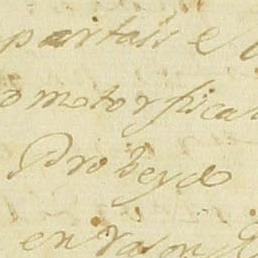 partais e
o motor fica
Probeydo
en rason